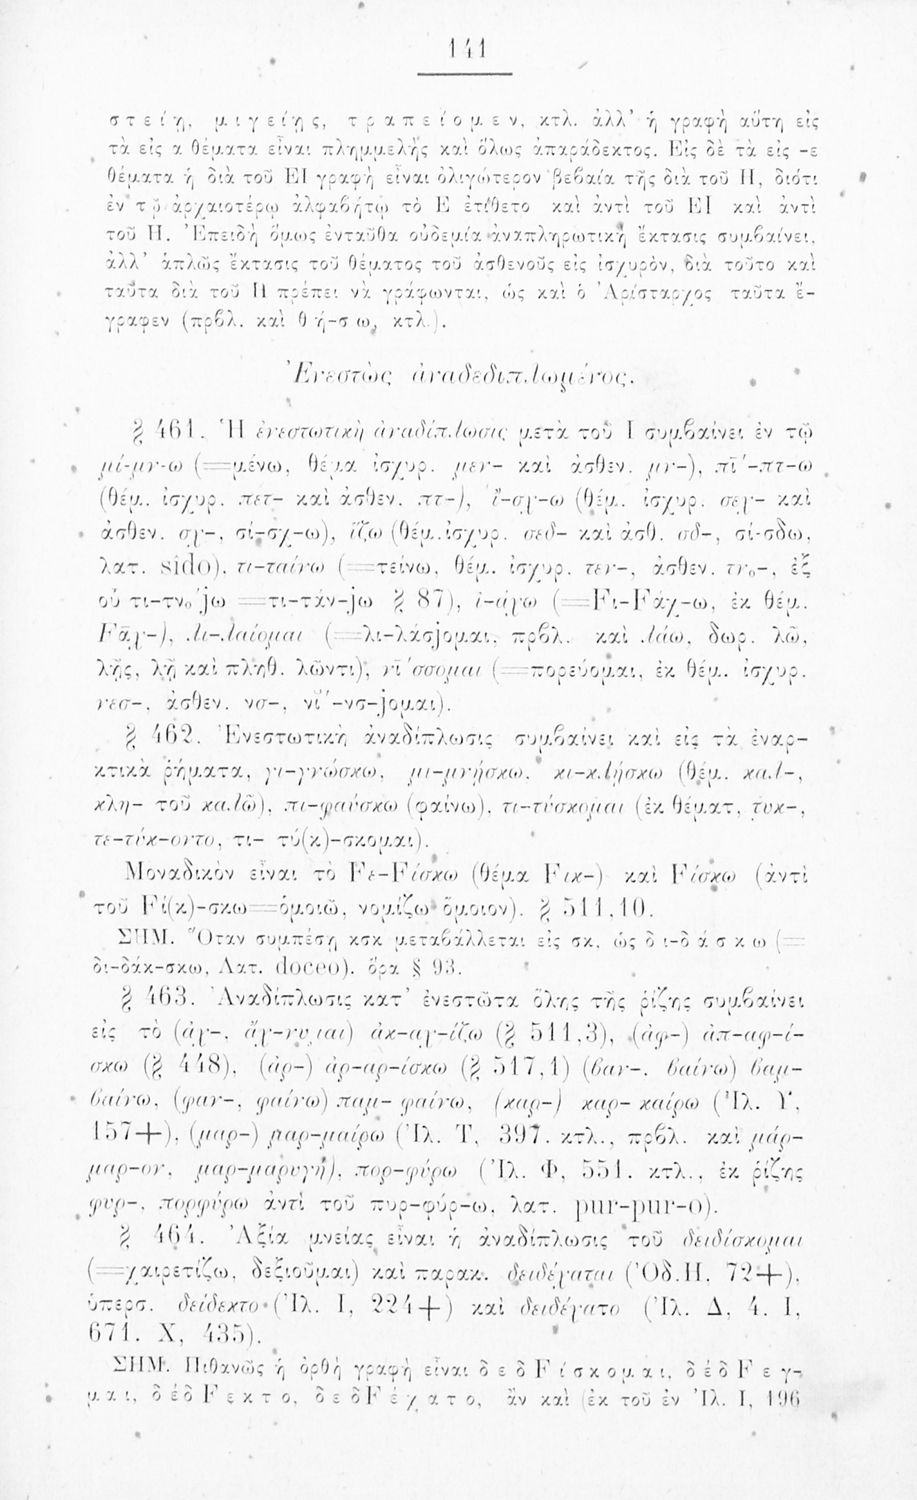 141
στείῃ, μιγείῃς, τραπείομεν, κτλ. ἀλλ’ ἡ γραφὴ αὕτη εἰς
τὰ εἰς α θέματα εἶναι πλημμελὴς καὶ ὅλως ἀπαράδεκτος. Εἰς δὲ τὰ εἰς -ε
θέματα ἡ διὰ τοῦ ΕΙ γραφὴ εἶναι ὀλιγώτερον βεβαία τῆς διὰ τοῦ Η, διότι
ἐν τῷ ἀρχαιοτέρῳ ἀλφαβήτῳ τὸ Ε ἐτίθετο καὶ ἀντὶ τοῦ ΕΙ καὶ ἀντὶ
τοῦ Η. Ἐπειδὴ ὅμως ἐνταῦθα οὐδεμία ἀναπληρωτικὴ ἔκτασις συμβαίνει,
ἀλλ’ ἁπλῶς ἔκτασις τοῦ θέματος τοῦ ἀσθενοῦς εἰς ἰσχυρὸν, διὰ τοῦτο καὶ
ταῦτα διὰ τοῦ Η πρέπει νὰ γράφωνται, ὡς καὶ ὁ Ἀρίσταρχος ταῦτα ἔ-
γραφεν (πρβλ. καὶ θή-σω, κτλ.).
Ἐνεστὼς ἀναδεδιπλωμένος.
§ 461. Ἡ ἐνεστωτικὴ ἀναδίπλωσις μετὰ τοῦ Ι συμβαίνει ἐν τῷ
μί-μν-ω (=μένω, θέμα ἰσχυρ. μεν- καὶ ἀσθεν. μν-), πῖ́-πτ-ω
(θέμ. ἰσχυρ. πετ- καὶ ἀσθεν. πτ-), ἴ-σχ-ω (θέμ. ἰσχυρ. σεχ- καὶ
ἀσθεν. σχ-, σί-σχ-ω), ἵζω (θέμ. ἰσχυρ. σεδ- καὶ ἀσθ. σδ-, σί-σδω,
λατ. sido), τι-ταίνω (=τείνω, θέμ. ἰσχυρ. τεν-, ἀσθεν. τνₒ-, ἐξ
οὗ τι-τνₒ́jω =τι-τάν-jω § 87), ἰ-άχω (=Fι-Fάχ-ω, ἐκ θέμ.
Fᾱχ-), λι-λαίομαι (=λι-λάσjομαι, πρβλ. καὶ λάω, δωρ. λῶ,
λῇς, λῇ καὶ πληθ. λῶντι), νῖ́σσομαι (=πορεύομαι, ἐκ θέμ. ἰσχυρ.
νεσ-, ἀσθεν. νσ-, νῖ́-νσ-jομαι).
§ 462. Ἐνεστωτικὴ ἀναδίπλωσις συμβαίνει καὶ εἰς τὰ ἐναρ-
κτικὰ ῥήματα, γι-γνώσκω, μι-μνήσκω, κι-κλήσκω (θέμ. καλ-,
κλη- τοῦ καλῶ), πι-φαύσκω (φαίνω), τι-τύσκομαι (ἐκ θέματ. τυκ-,
τε-τύκ-οντο, τι- τύ(κ)-σκομαι).
Μοναδικὸν εἶναι τὸ Fε-Fίσκω (θέμα Fικ-) καὶ Fίσκω (ἀντὶ
τοῦ Fί(κ)-σκω=ὁμοιῶ, νομίζω ὅμοιον). § 511,10.
ΣΗΜ. Ὅταν συμπέσῃ κσκ μεταβάλλεται εἰς σκ, ὡς δι-δάσκω (=
δι-δάκ-σκω, Λατ. doceo). ὅρα § 93.
§ 463. Ἀναδίπλωσις κατ’ ἐνεστῶτα ὅλης τῆς ῥίζης συμβαίνει
εἰς τὸ (ἀχ-, ἄχ-νυμαι) ἀκ-αχ-ίζω (§ 511,3), (ἀφ-) ἀπ-αφ-ί-
σκω (§ 448), (ἀρ-) ἀρ-αρ-ίσκω (§ 517,1) (βαν-, βαίνω) βαμ-
βαίνω, (φαν-, φαίνω) παμ-φαίνω, (χαρ-) καρ-χαίρω (Ἰλ. Υ,
157+), (μαρ-) μαρ-μαίρω (Ἰλ. Τ, 397. κτλ., πρβλ. καὶ μάρ-
μαρ-ον, μαρ-μαρυγή), πορ-φύρω (Ἰλ. Φ, 551. κτλ., ἐκ ῥίζης
φυρ-, πορφύρω ἀντὶ τοῦ πυρ-φύρ-ω, λατ. pur-pur-o).
§ 464. Ἀξία μνείας εἶναι ἡ ἀναδίπλωσις τοῦ δειδίσκομαι
(=χαιρετίζω, δεξιοῦμαι) καὶ παρακ. δειδέχαται (Ὀδ. Η, 72+),
ὑπερσ. δείδεκτο (Ἰλ. Ι, 224+) καὶ δειδέχατο (Ἰλ. Δ, 4. Ι,
671. Χ, 435).
ΣΗΜ. Πιθανῶς ἡ ὀρθὴ γραφὴ εἶναι δεδFίσκομαι, δέδFεγ-
μαι, δέδFεκτο, δεδFέχατο, ἂν καὶ (ἐκ τοῦ ἐν Ἰλ. Ι, 196